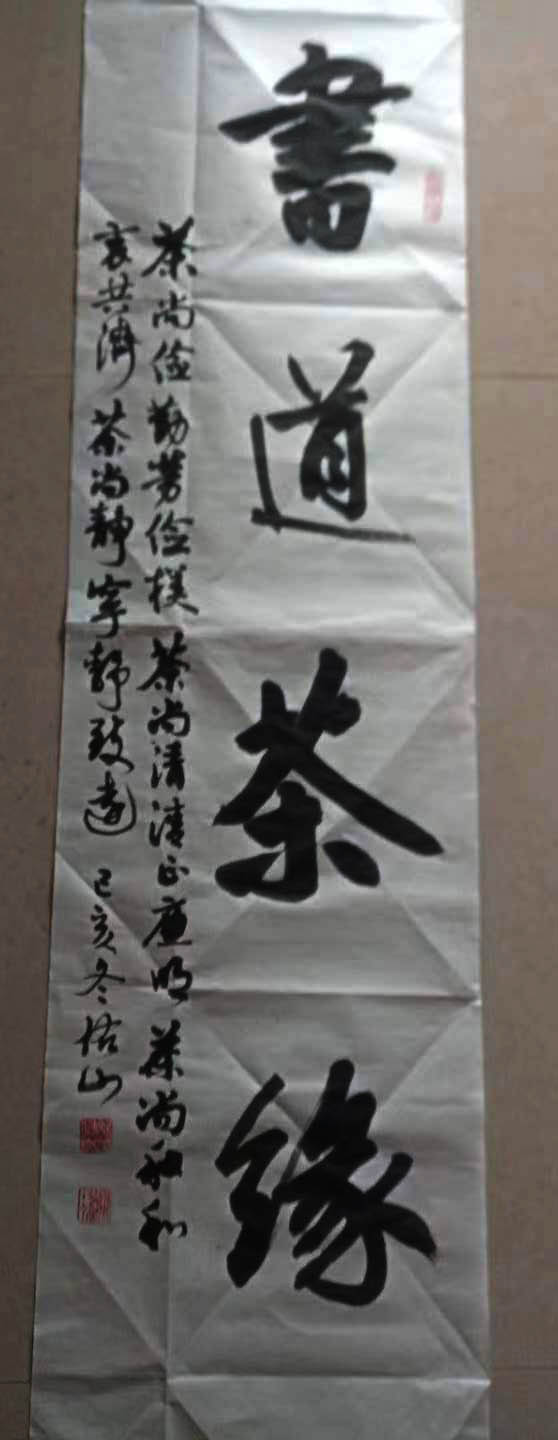 書道茶缘
茶尚俭勤劳俭樸茶尚清清正廉明茶尚和和
衷共濟茶尚静寧静致遠己亥冬佑山